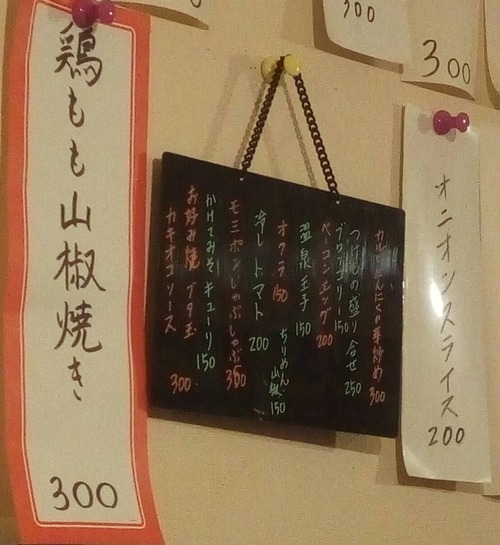 300
300
オニオンスライス 200
カルビにんにくの芽炒め 300
つけもの盛り合せ 250
ブロッコリー 150
ベーコンエッグ 200
温泉玉子 150
ちりめん山椒 150
オクラ 150
冷しトマト 200
モミポンしゃぶしゃぶ 300
かけてみそキューリ 150
お好み焼 ブタ玉
カキオコソース 300
鶏もも山椒焼き 300